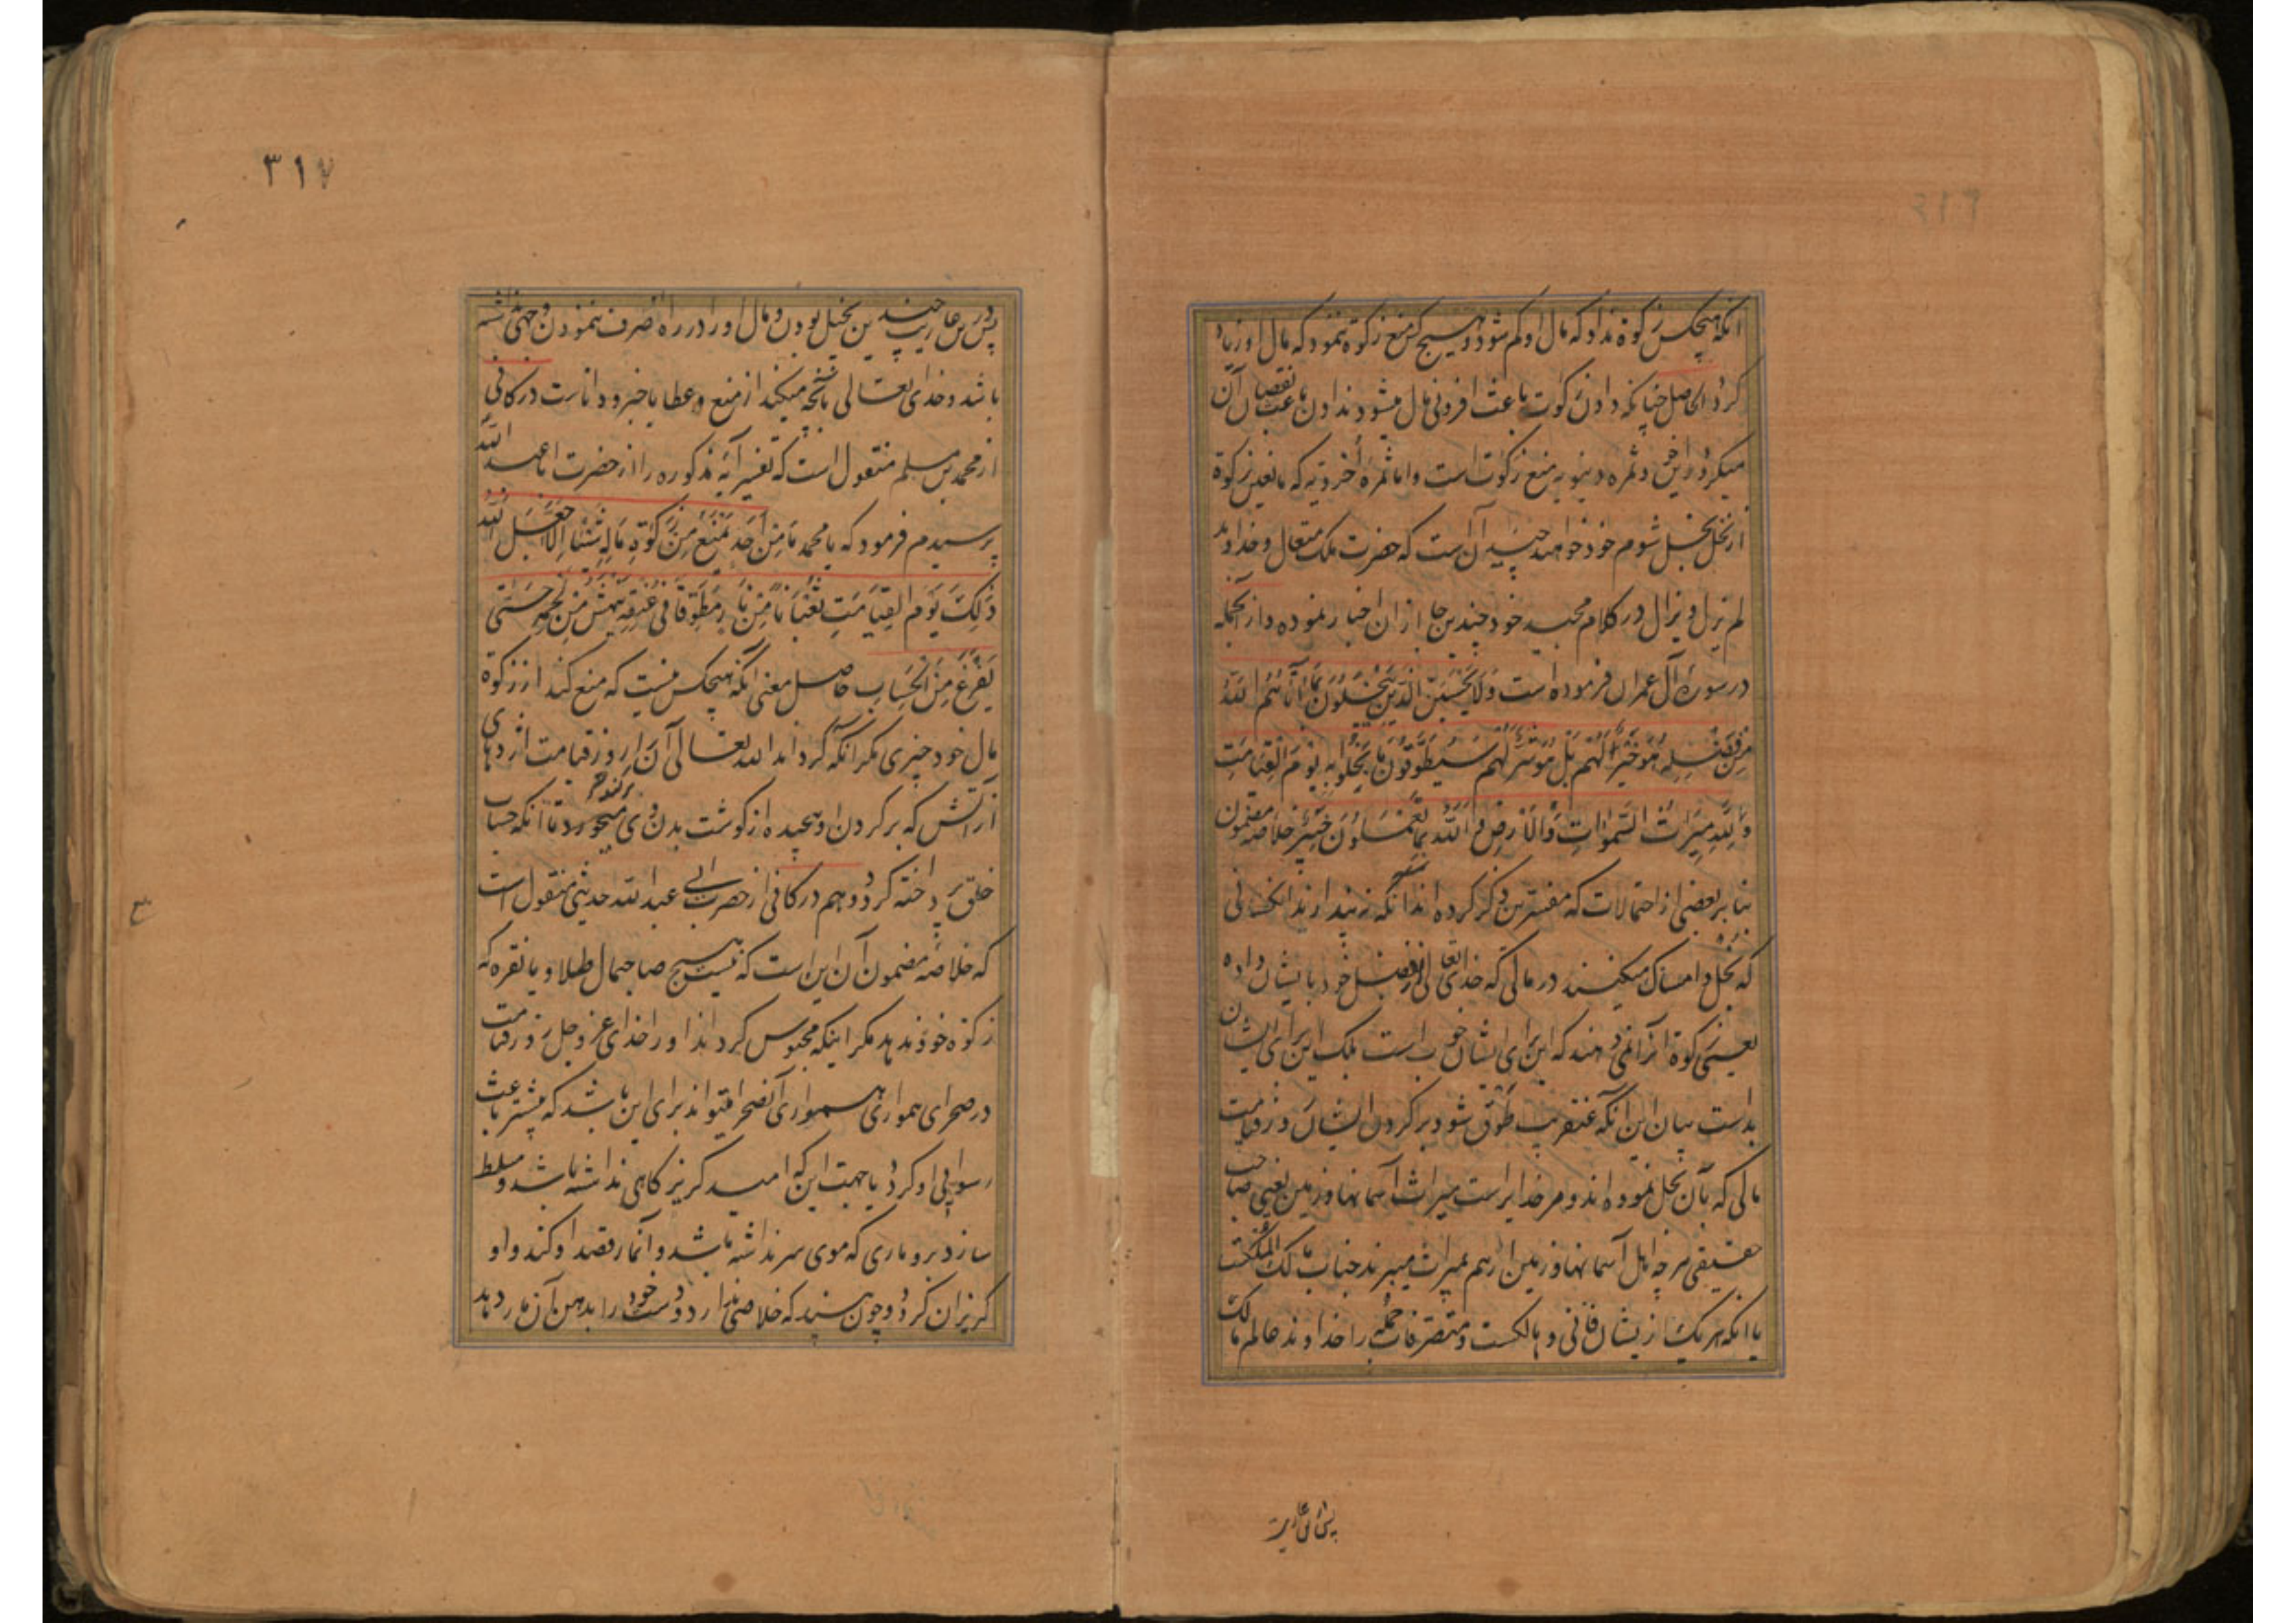 ٣١٦
آنکه هیچکس زکوة نداد که مال او کم شود و هیچ کس منع زکوة ننمود که مال او زیاد
کردد الحاصل چنانکه دادن زکوت باعث افزونی مال میشود ندادن باعث نقصان آن
میکردد این ثمره دنیویه منع زکوتست و اما ثمرهٔ اخرویه که مانعین زکوة
از نخل بخل شوم خود خواهند چید آن است که حضرت ملک متعال و خداوند
لم یزل و لایزال در کلام مجید خود چندین جا از ان اخبار نموده و از آنجمله
در سورهٔ آل عمران فرموده است وَلَا یَحْسَبَنَّ الَّذِینَ یَبْخَلُونَ بِمَا آتَاهُمُ اللَّهُ
مِن فَضْلِهِ هُوَ خَیْرًا لَّهُم بَلْ هُوَ شَرٌّ لَّهُمْ سَیُطَوَّقُونَ مَا بَخِلُوا بِهِ یَوْمَ الْقِیَامَتِ
وَلِلَّهِ مِیرَاثُ السَّمٰوَاتِ وَالْأَرْضِ وَاللَّهُ بِمَا تَعْمَلُونَ خَبِیرٌ خلاصه مضمون
بنا بر بعضی از احتمالات که مفسرین ذکر کرده اند آنکه نه پندارند آنکسانی
که بخل و امساک میکنند در مالی که خدای تعالی از فضل خود بایشان داده
یعنی زکوة آنرا نمی دهند که این برای ایشان خوب است بلکه این برای ایشان
بد است بیان این آنکه عنقریب طوق شود بر کردن ایشان روز قیامت
مالی که بآن بخل نموده اند و مر خدایراست میراث آسمانها و زمین یعنی صاحب
حقیقی هر چه اهل آسمانها و زمین از هم بمیراث میبرند جناب مالک الملکست
یا آنکه هر یک از یشان فانی و هالکست و متصرفات جمله را خداوند عالم مالک
پس در این
٣١٧
پس در این جا چندین بخیل بودن و مال او را در راه او صرف ننمودن وجهی نداشته
باشد و خدای تعالی بآنچه میکنید از منع و عطا با خبر و داناست در کافی
از محمد بن مسلم منقول است که تفسیر آیهٔ مذکوره را از حضرت ابا عبد الله
پرسیدم فرمود که یا محمد مَا مِنْ اَحَدٍ یَمْنَعُ مِنْ زَکوٰةِ مَالِهِ شَیْئًا اِلَّا جَعَلَ اللَّهُ
ذٰلِکَ یَوْمَ الْقِیَامَتِ ثُعْبَانًا مِنْ نَارٍ مُطَوَّقًا فِی عُنُقِهِ یَنْهَشُ مِنْ لَحْمِهِ حَتّٰی
یَفْرُغَ مِنَ الْحِسَابِ حاصل معنی آنکه هیچکس نیست که منع کند از زکوة
مال خود چیزی مکر آنکه کرداند الله تعالی آن را روز قیامت اژدهای
از آتش که بر کردن او پیچیده از کوشت بدن وی میخورد تا آنکه حساب
خلق پرداخته کردد و هم در کافی از حضرت ابی عبد الله حدیثی منقول است
که خلاصهٔ مضمون آن این است که نیست هیچ صاحبمال طلا و یا نقره که
زکوة خود ندهد مکر اینکه محبوس کرداند او را خدای عز و جل روز قیامت
در صحرای همواری همواری آنصحرا میتواند برای این باشد که بیشتر باعث
رسوایی او کردد یا جهت این که امید کریز کاهی نداشته باشد و مسلط
سازد برو ماری که موی سر نداشته باشد و آنمار قصد او کند و او
کریزان کردد و چون بیند که خلاصی ندارد دست خود را بدهن آن مار دهد